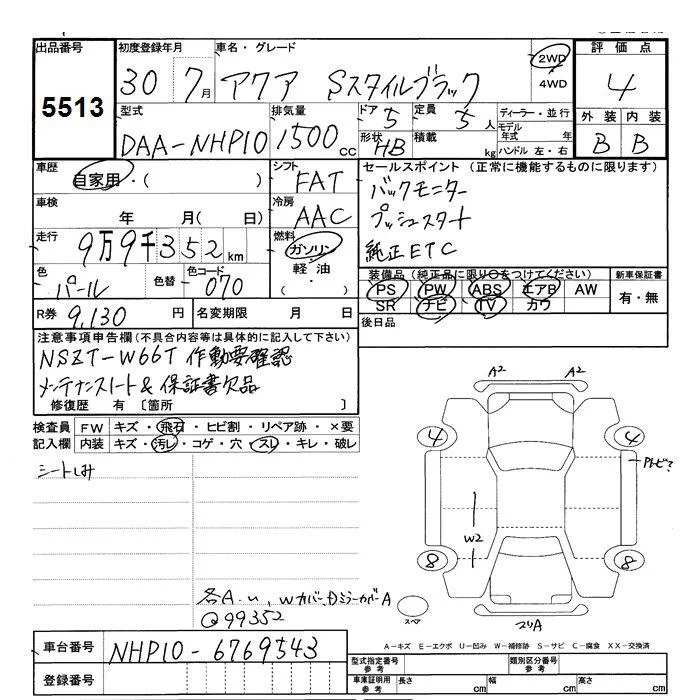 出品番号 初度登録年月 車名・グレード 2WD 4WD 評価点
5513 30 7月 アクア Sスタイルブラック 4
型式 排気量 ドア 5 定員 5人 ディーラー・並行 外装 内装
DAA-NHP10 1500cc 形状 HB 積載 kg モデル年式 年 ハンドル 左・右 B B
車歴 自家用・( ) シフト FAT セールスポイント (正常に機能するものに限ります)
車検 年 月(日) 冷房 AAC バックモニター
プッシュスタート
走行 9万9千352km 燃料 ガソリン 軽油・ 純正ETC
色 パール 色替 色コード 070 装備品(純正品に限り○をつけてください) 新車保証書
PS PW ABS エアB AW 有・無
SR ナビ TV カワ
R券 9,130円 名変期限 月 日 後日品
注意事項申告欄(不具合内容等は具体的に記入して下さい)
NSZT-W66T 作動要確認
メンテナンスノート&保証書欠品
修復歴 有 〔箇所 〕
検査員記入欄 FW キズ・飛石・ヒビ割・リペア跡・×要
内装 キズ・汚レ・コゲ・穴・スレ・キレ・破レ
シートしみ
A2 A2
4 4
W2
8 8
各A.U, Wカバー,Dミラーカバー A
Q99352
スペア
A-キズ E-エクボ U-凹み W-補修跡 S-サビ C-腐食 XX-交換済
車台番号 NHP10-6769543 型式指定番号 参考 類別区分番号 参考
登録番号 車庫証明用 参考 長さ cm 幅 cm 高さ cm